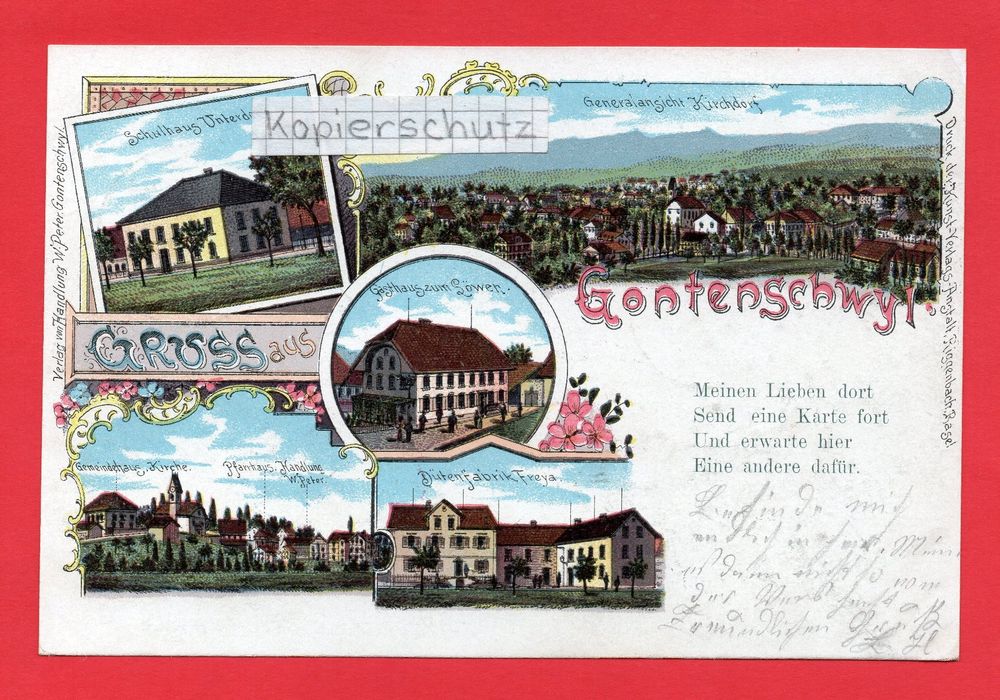 Schulhaus Unterdo
Kopierschutz
Generalansicht Kirchdorf
Verlag von Handlung W. Peter, Gontenschwyl.
Druck der Kunst-Verlags-Anstalt, Riggenbach, Basel
Gasthaus zum Löwen.
Gontenschwyl.
GRUSS aus
Meinen Lieben dort
Send eine Karte fort
Und erwarte hier
Eine andere dafür.
Gemeindehaus, Kirche. Pfarrhaus, Handlung
W. Peter.
Dütenfabrik Freya.
Befinde mich
Freundlichen Gruß